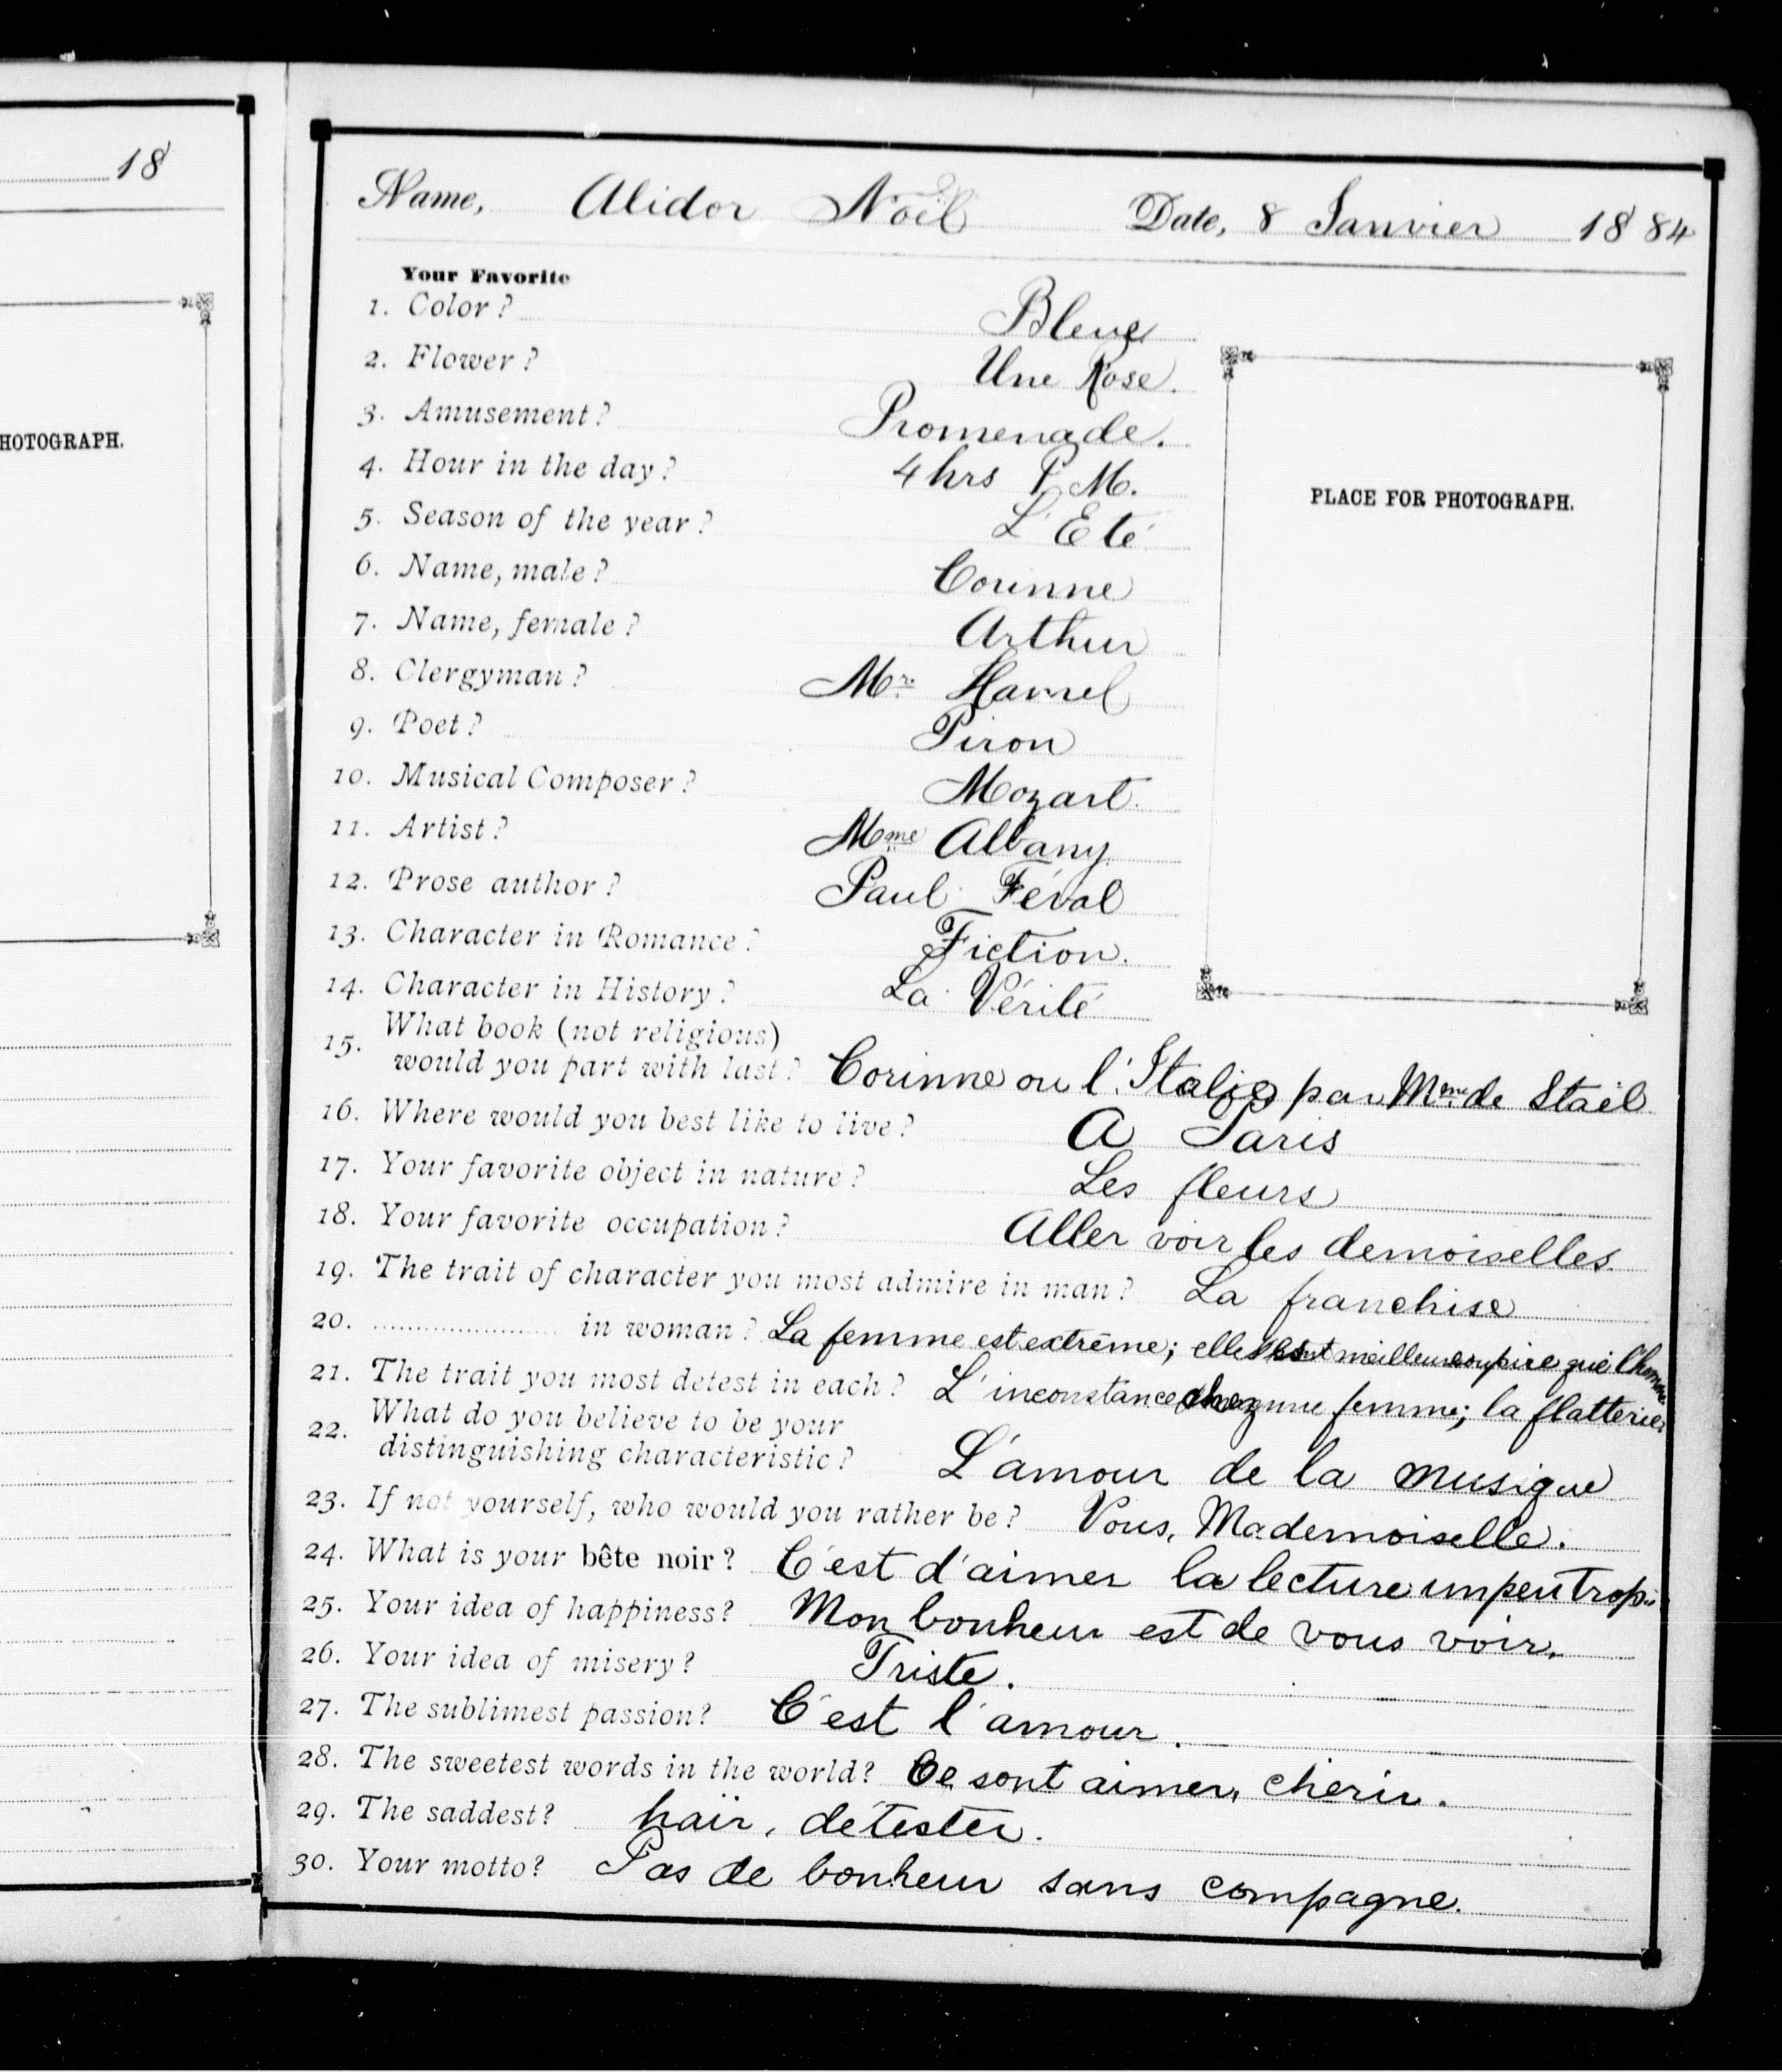 18
HOTOGRAPH.
Name, Alidor Noël Date, 8 Janvier 1884
Your Favorite
1. Color? Bleue
2. Flower? Une Rose.
3. Amusement? Promenade.
4. Hour in the day? 4 hrs P. M.
5. Season of the year? L'Eté
6. Name, male? Corinne
7. Name, female? Arthur
8. Clergyman? Mr. Hamel
9. Poet? Piron
10. Musical Composer? Mozart.
11. Artist? Mme Albany
12. Prose author? Paul Féval
13. Character in Romance? Fiction.
14. Character in History? La Vérité
PLACE FOR PHOTOGRAPH.
15. What book (not religious)
would you part with last? Corinne ou l'Italie par Mme de Staël
16. Where would you best like to live? A Paris
17. Your favorite object in nature? Les fleurs
18. Your favorite occupation? Aller voir les demoiselles.
19. The trait of character you most admire in man? La franchise
20. .................... in woman? La femme est extrême; elle est meilleure ou pire que l'homme
21. The trait you most detest in each? L'inconstance chez une femme; la flatterie
22. What do you believe to be your
distinguishing characteristic? L'amour de la musique
23. If not yourself, who would you rather be? Vous, Mademoiselle.
24. What is your bête noir? C'est d'aimer la lecture un peu trop.
25. Your idea of happiness? Mon bonheur est de vous voir.
26. Your idea of misery? Triste.
27. The sublimest passion? C'est l'amour.
28. The sweetest words in the world? Ce sont aimer, cherir.
29. The saddest? haïr, détester.
30. Your motto? Pas de bonheur sans compagne.